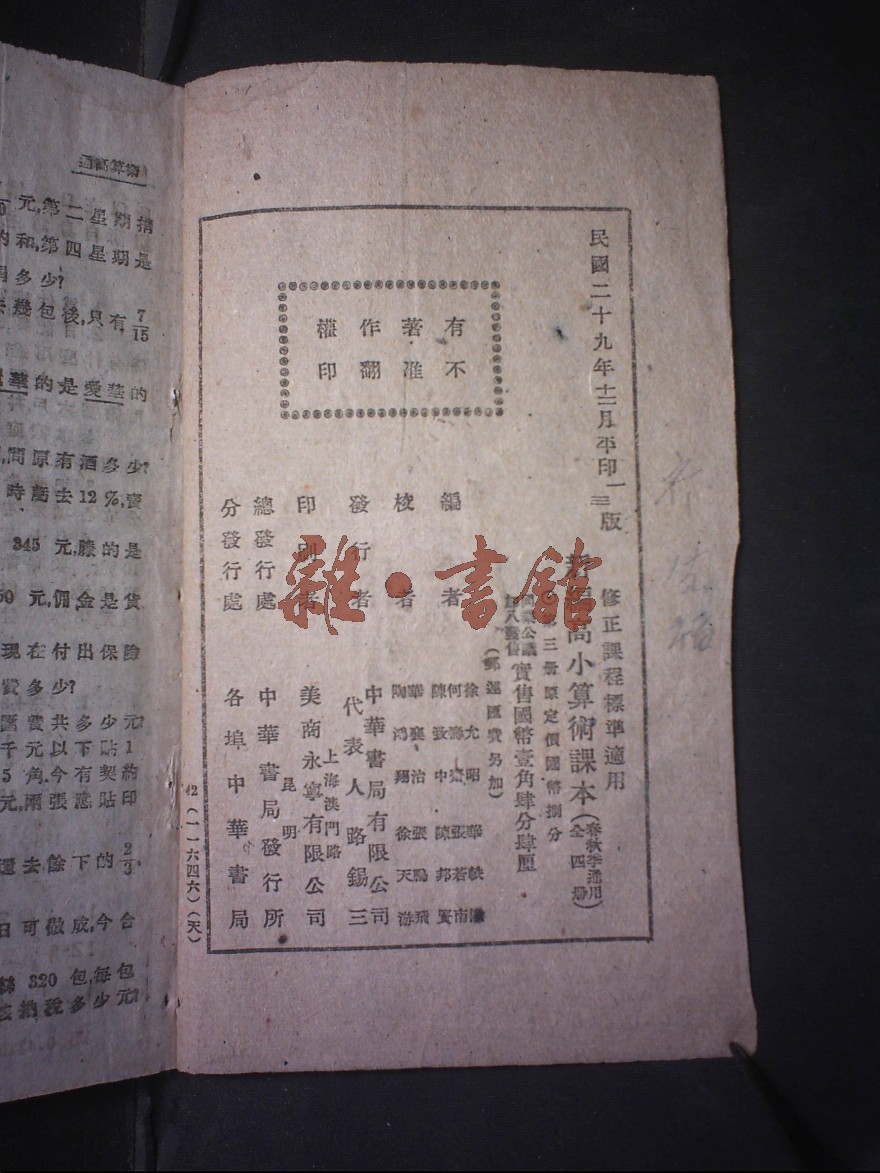 民國二十九年十二月平印一三版
修正課程標準適用
高小算術課本
(春秋季通用 全四册)
第三册原定價國幣捌分
實售國幣壹角肆分肆厘
(郵運匯費另加)
有著作權
不准翻印
編者
徐允昭
何
張若南
陳致中
陳邦賢
校者
華襄治
張鵬飛
陶鴻翔
徐天游
發行者
中華書局有限公司
代表人路錫三
印刷者
上海澳門路
美商永寧有限公司
總發行處
昆明
中華書局發行所
分發行處
各埠中華書局
42(一一六四六)(天)
雜·書館
算術
元,第二星期捐
的和,第四星期是
多少?
幾包後,只有 7/15
華的是愛華的
問原有酒多少?
時虧去12%,賣
345 元,賸的是
元,佣金是貨
現在付出保險
費多少?
匯費共多少元?
千元以下貼1
5角.今有契約
元,兩張應貼印
還去餘下的 2/3,
日可做成,今合
320 包,每包
納稅多少元?